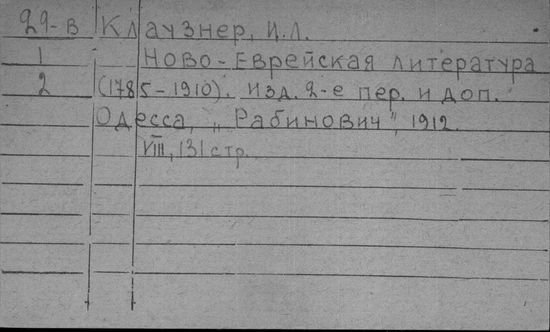 29-в Клаузнер, И.Л.
1 Ново-Еврейская литература
2 (1785-1910). изд. 2-е пер. и доп.
Одесса, „Рабинович", 1912.
VIII, 131 стр.